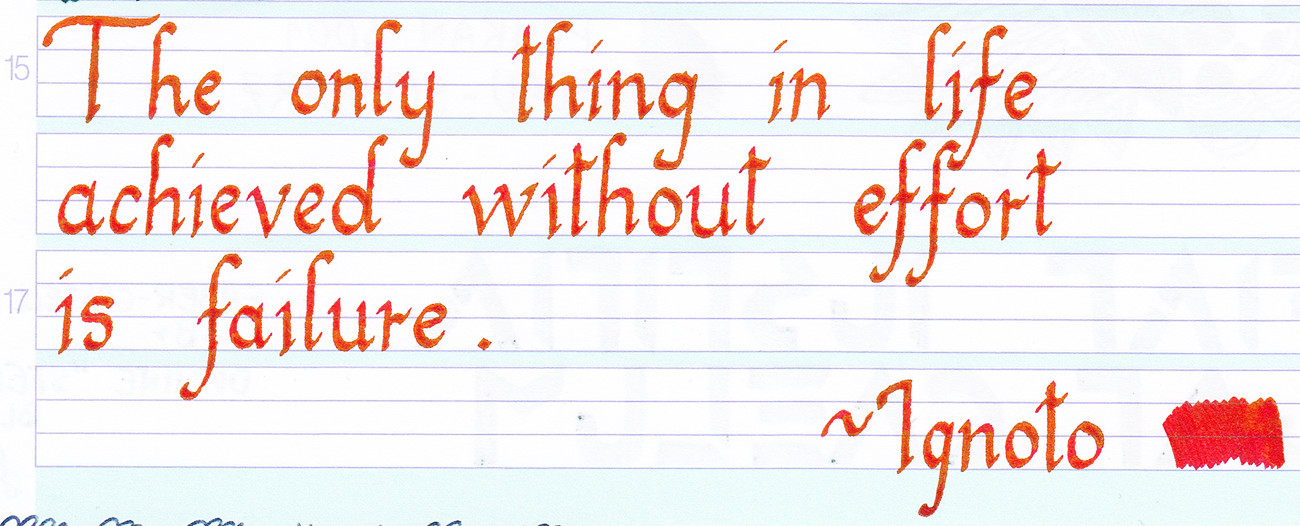 15
The only thing in life
achieved without effort
17
is failure .
~Ignoto